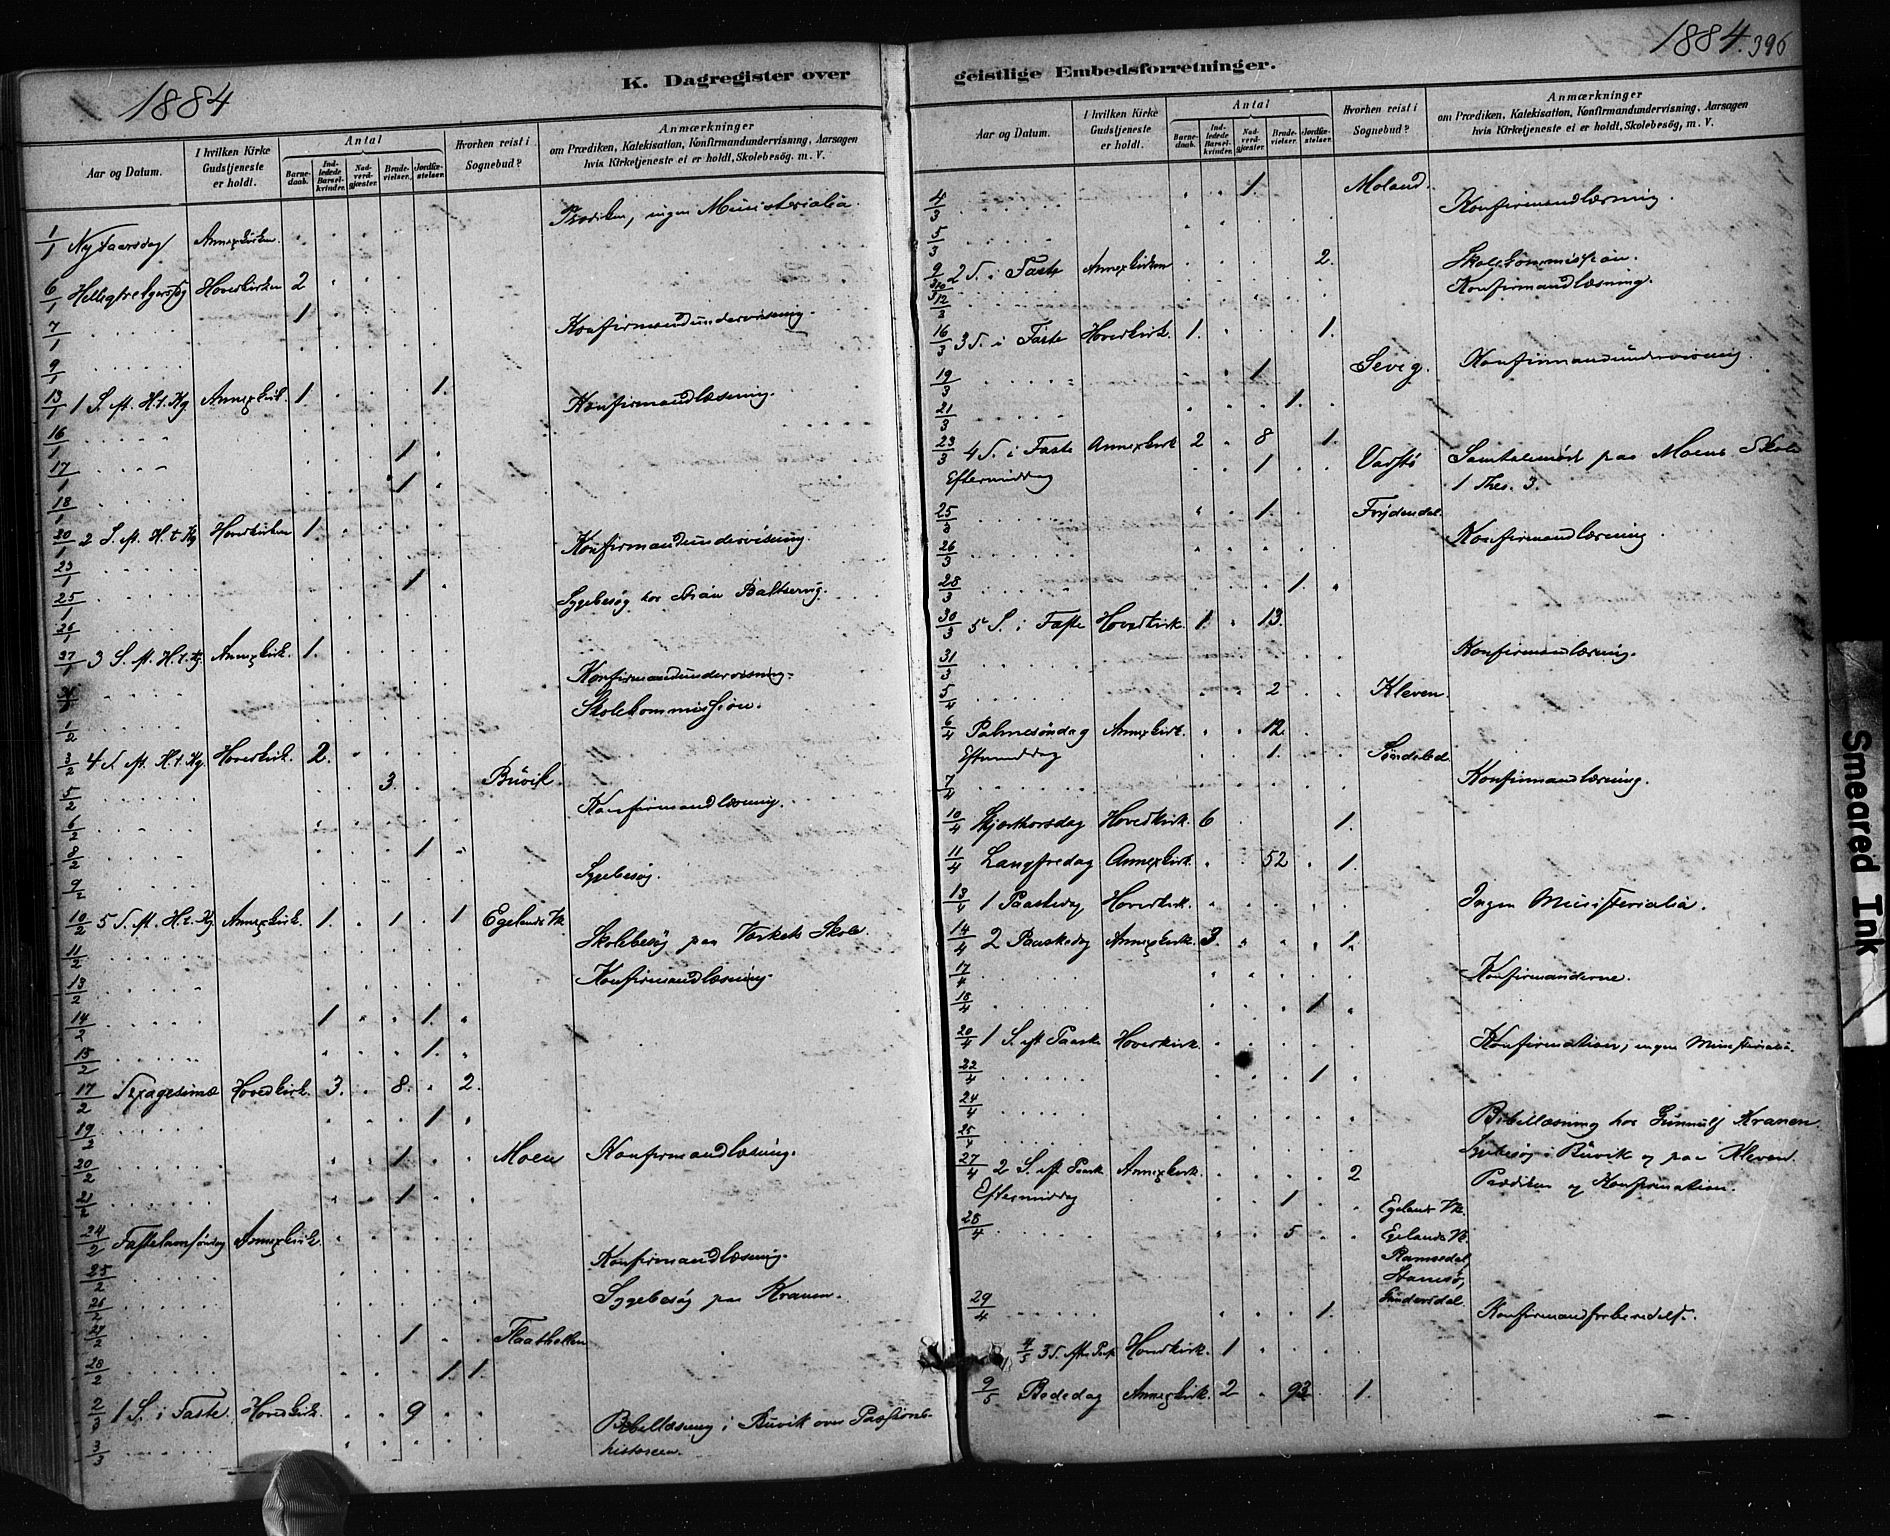 1884
K. Dagregister over
Aar og Datum.
I hvilken Kirke Gudstjeneste er holdt.
Antal
Barne-daab.
Ind-ledede Barsel-kvinder.
Nad-verd-gjæster.
Brude-vielser.
Jordfæ-stelser.
Hvorhen reist i Sognebud?
Anmærkninger
om Prædiken, Katekisation, Konfirmandundervisning, Aarsagen
hvis Kirketjeneste ei er holdt, Skolebesøg, m. V.
1/1 Nytaarsdag Annexkirken. Prædiken, ingen Ministerialia.
6/1 Helligtrekongersdag Hovedkirken 2
7/1 1
9/1 Konfirmandundervisning.
13/1 1 S. eft. H.t.Kg Annexkirk. 1. 1.
16/1 Konfirmandlæsning.
17/1 1
18/1 1
20/1 2 S. eft. H.t.Kg Hovedkirken 1.
23/1 Konfirmandundervisning.
25/1 1
26/1 Sygebesøg hos
27/1 3 S. eft. H.t.Kg. Annexkirk. 1.
Konfirmandundervisning.
1/2 Skolekommission.
3/2 4 S eft. H.t.Kg. Hovedkirk. 2.
5/2 3. Büvik.
6/2 Konfirmandlæsning.
8/2 1
9/2 Sygebesøg.
10/2 5 S. eft. H.t.Kg Annexkirk. 1. 1 1 Egelands Vk
11/2 Skolebesøg paa Værkets Skole.
13/2 Konfirmandlæsning.
14/2 1 1.
15/2 1.
17/2 Sexagesimæ Hovedkirk. 3. 8. 2.
19/2 1
20/2 1 Moen Konfirmandlæsning.
21/2 1
24/2 Fastelavnsøndag Annexkirk.
25/2 Konfirmandlæsning.
26/2 Sygebesøg paa Kranen.
27/2 1 Flaathellen
28/2 1. 1.
2/3 1 S. i Faste. Hovedkirk. 9
3/3 Bibellæsning i Büvik over Passions-
historien.
1884. 396
geistlige Embedsforretninger.
Aar og Datum.
I hvilken Kirke Gudstjeneste er holdt.
Antal
Barne-daab.
Ind-ledede Barsel-kvinder.
Nad-verd-gjæster.
Brude-vielser.
Jordfæ-stelser.
Hvorhen reist i Sognebud?
Anmærkninger
om Prædiken, Katekisation, Konfirmandundervisning, Aarsagen
hvis Kirketjeneste ei er holdt, Skolebesøg, m. V.
4/3 1. Moland.
5/3 Konfirmandlæsning.
9/3 2 S. i Faste Annexkirken 2.
Skolekommission.
12/3 Konfirmandlæsning.
16/3 3 S. i Faste Hovedkirk. 1. 1.
19/3 1 Sevig. Konfirmandundervisning.
21/3 1.
23/3 4 S. i Faste Annexkirk 2 8 1.
Eftermiddag 1 Varstø Samtalemøde paa Moens Skole
1 Thes. 3.
25/3 1 Frydendal.
26/3 Konfirmandlæsning.
28/3 1.
30/3 5 S. i Faste Hovedkirk. 1. 13.
31/3 Konfirmanlæsning.
5/4 2 Kleven
6/4 Palmesøndag Annexkirk. 12.
Eftermiddag 1. Søndeled
7/4 Konfirmandlæsning.
10/4 Skjærthorsdag Hovedkirk. 6 1.
11/4 Langfredag Annexkirk. 52 1.
13/4 1 Paaskedag Hovedkirk. Ingen Ministerialia.
14/4 2 Paaskedag Annexkirk. 3. 1.
17/4 Konfirmanderne.
18/4 1
20/4 1 S. eft Paaske Hovedkirk. Konfirmation, ingen Ministerialia.
22/4 1
24/4 Bibellæsning hos Gunnulf Kranen.
25/4 Sygebesøg i Büvik og paa Kleven.
27/4 2 S. eft Paask Annexkirk. 2 Prædiken og Konfirmation.
Eftermiddag 1 Egelands Vk
28/4 5 Egelands Vk.
Ramsedal,
Stamsø,
29/4 1. Konfirmandforberedelse.
4/5 3 S. efter Paask Hovedkirk. 1
9/5 Bededag Annexkirk. 2 93 1.
Smeared Ink